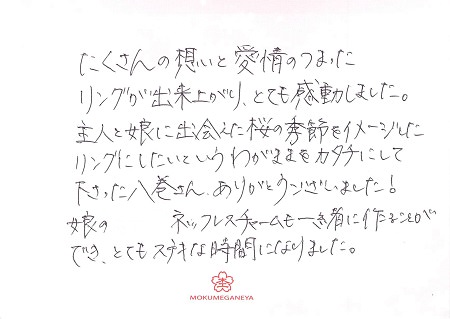 たくさんの想いと愛情のつまった
リングが出来上がり、とても感動しました。
主人と娘に出会えた桜の季節をイメージした
リングにしたいというわがままをカタチにして
下さった八巻さん、ありがとうございました!
娘の ネックレスチャームも一緒に作ることが
でき、とてもステキな時間になりました。
MOKUMEGANEYA